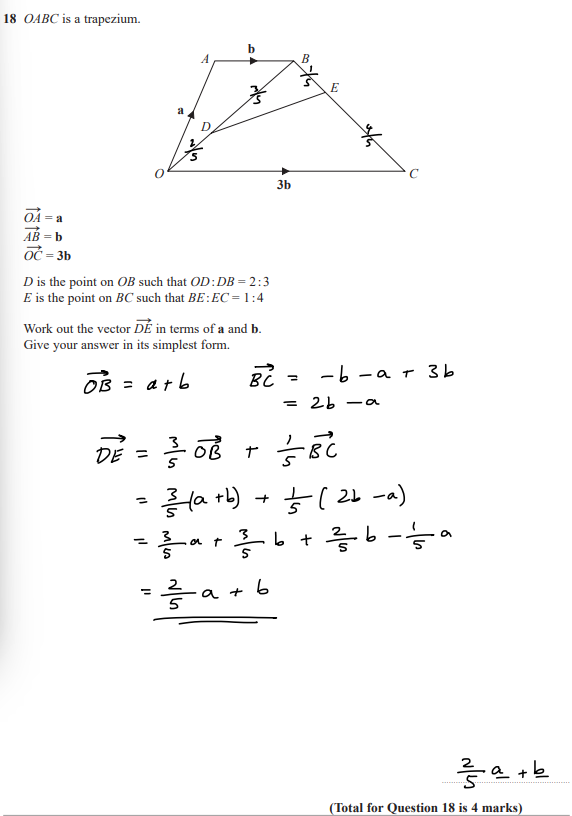 18 OABC is a trapezium.
A b B
1/5
E
3/5
a
D
4/5
2/5
O C
3b
OA→ = a
AB→ = b
OC→ = 3b
D is the point on OB such that OD : DB = 2 : 3
E is the point on BC such that BE : EC = 1 : 4
Work out the vector DE→ in terms of a and b.
Give your answer in its simplest form.
OB→ = a + b BC→ = -b - a + 3b
= 2b - a
DE→ = 3/5 OB→ + 1/5 BC→
= 3/5 (a + b) + 1/5 (2b - a)
= 3/5 a + 3/5 b + 2/5 b - 1/5 a
= 2/5 a + b
2/5 a + b
(Total for Question 18 is 4 marks)